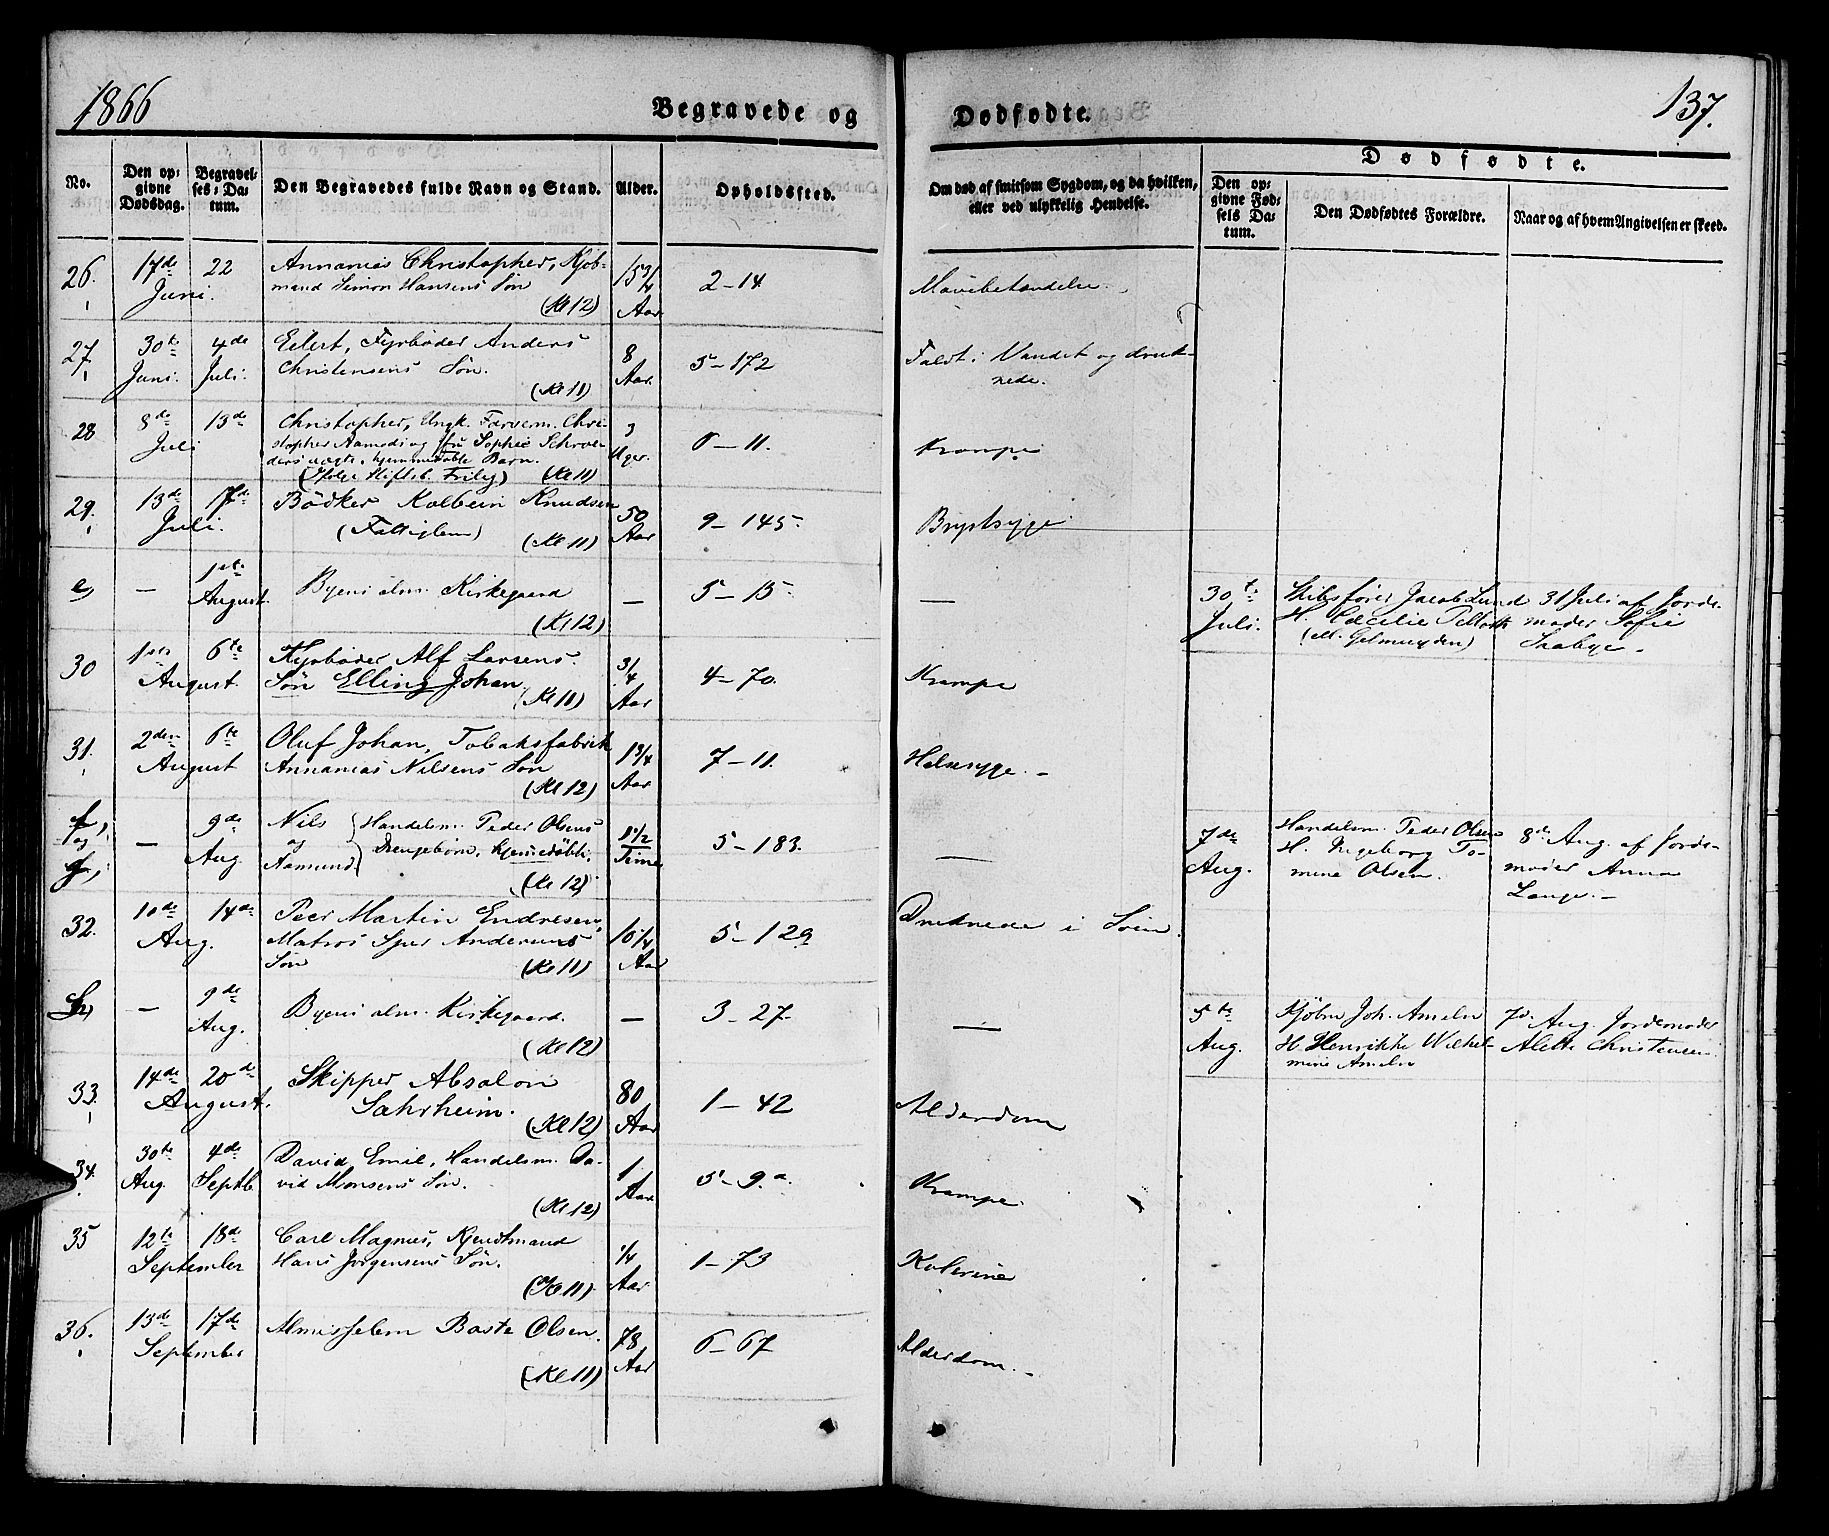 1866
Begravede og
Dødfødte.
137.
No.
Den opgivne Dødsdag.
Begravelses-Datum.
Den Begravedes fulde Navn og Stand.
Alder.
Opholdssted.
Om død af smitsom Sygdom, og da hvilken, eller ved ulykkelig Hendelse.
Dødfødte.
Den opgivne Fødsels Datum.
Den Dødfødtes Forældre.
Naar og af hvem Angivelsen er skeed.
26. 17de 22 Annanias Christopher, Kjøb- 15 3/4 2-14 Mavebetændelse.
Juni. mand Simon Hansens Søn
(Kl 12) Aar
27. 30te 4de Eilert, Fyrbøder Anders 8 5-172 Faldt i Vandet og druk-
Juni. Juli. Christensens Søn. Aar. nede.
(Kl 11)
28 8de 13de Christopher, Ungk. Farvem. Chri- 3 0-11. Krampe
Juli stopher Aamodt og Sophie Schrøe-
ders uægte, hjemmedøbte Barn. Uger.
(Kl 11)
29. 13de 17de Bødker Kolbein Knudsen 50 9-145. Brystsyge
Juli. (Fattiglem) (Kl 11) Aar
e) — 1ste Byens alm. Kirkegaard — 5-15. — 30te Skibsfører Jacob Lund 31 Juli af Jorde-
August. Juli. H. Cæcilie moder Sofie
(Kl 12)
30 1ste 6te Fyrbøder Alf Larsens 3/4 4-70. Krampe
August. Søn Elling Johan
(Kl 11) Aar
31. 2den 6te Oluf Johan, Tobaksfabrik 1 3/4 7-11. Halssyge.
August Annanias Nilsens Søn
(Kl 12) Aar
f, og g, — 9de Nils og Aamund Handelsm. Peder Olsens 1 1/2 5-183. — 7de Handelsm. Peder Olsen 8de Aug. af Jorde-
Aug Drengebørn, hjemmedøbte. Time Aug. H. Ingeborg To- moder Anna
(Kl 12) mine Olsen. Lange.
32. 10de 14de Peer Martin Endresen, 10 1/4 5-129 Druknede i Søen.
Aug. Matros Sjur Andersens
Søn (Kl 11) Aar
h) — 9de Byens alm. Kirkegaard. — 3-27. — 5te Kjøbm Joh. Ameln 7de Aug. Jordemoder
Aug. Aug. H. Henrikke Wilhel- Alette Christensen
(Kl 12) mine Ameln
33. 14de 20de Skipper Absalon 80 1-42 Alderdom
August. Sahrheim.
(Kl 12) Aar
34. 30te 4de David Emil, Handelsm. Da- 1 5-9.a. Krampe.
Aug. Septb. vid Monsens Søn. Aar
(Kl 12)
35 12te 18de Carl Magnus, Kjendtmand 1/4 1-73 Kolerine
September Hans Jørgensens Søn.
(Kl 11) Aar
36. 13de 17de Almisselem Baste Olsen. 78 6-67 Alderdom.
September
(Kl 11) Aar